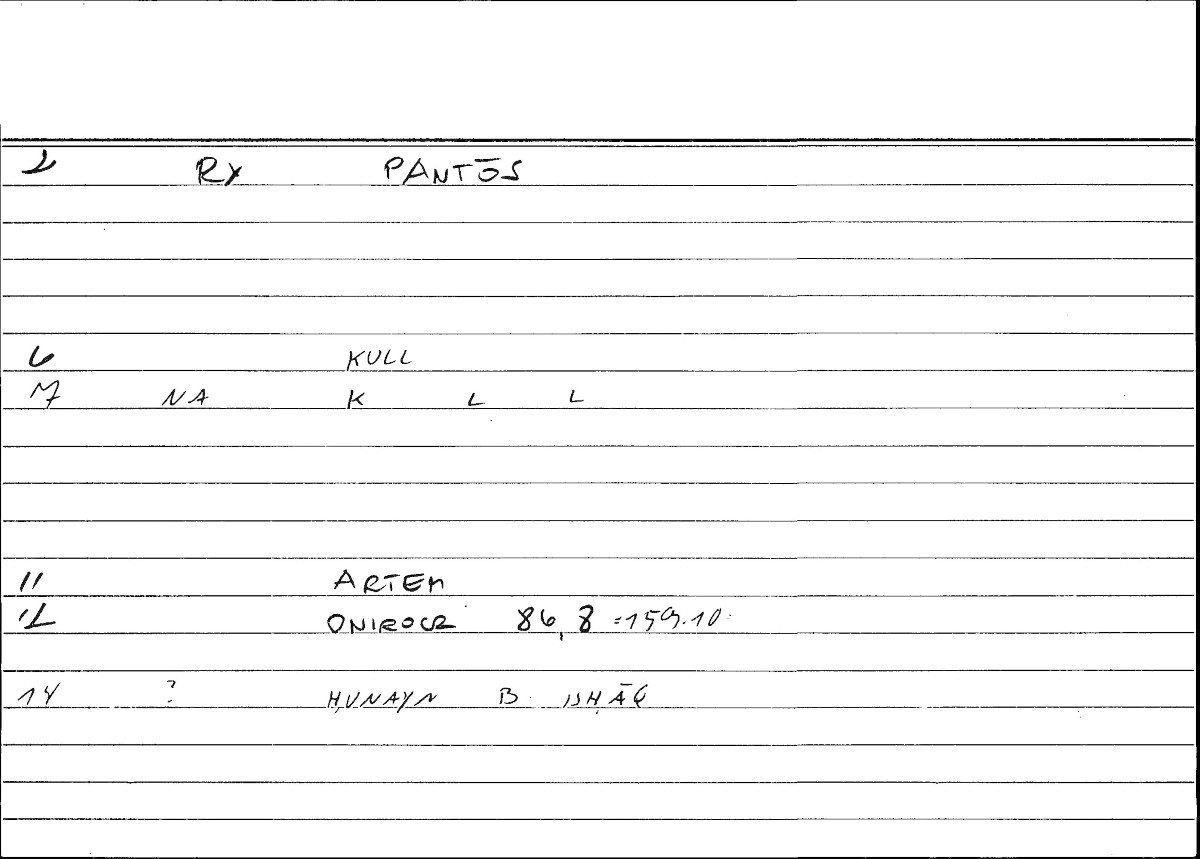 2 RX PANTŌS
6 KULL
7 NA K L L
11 ARTEM
12 ONIROCR 86,8 =159.10
14 ? ḤUNAYN B. ISḤĀQ